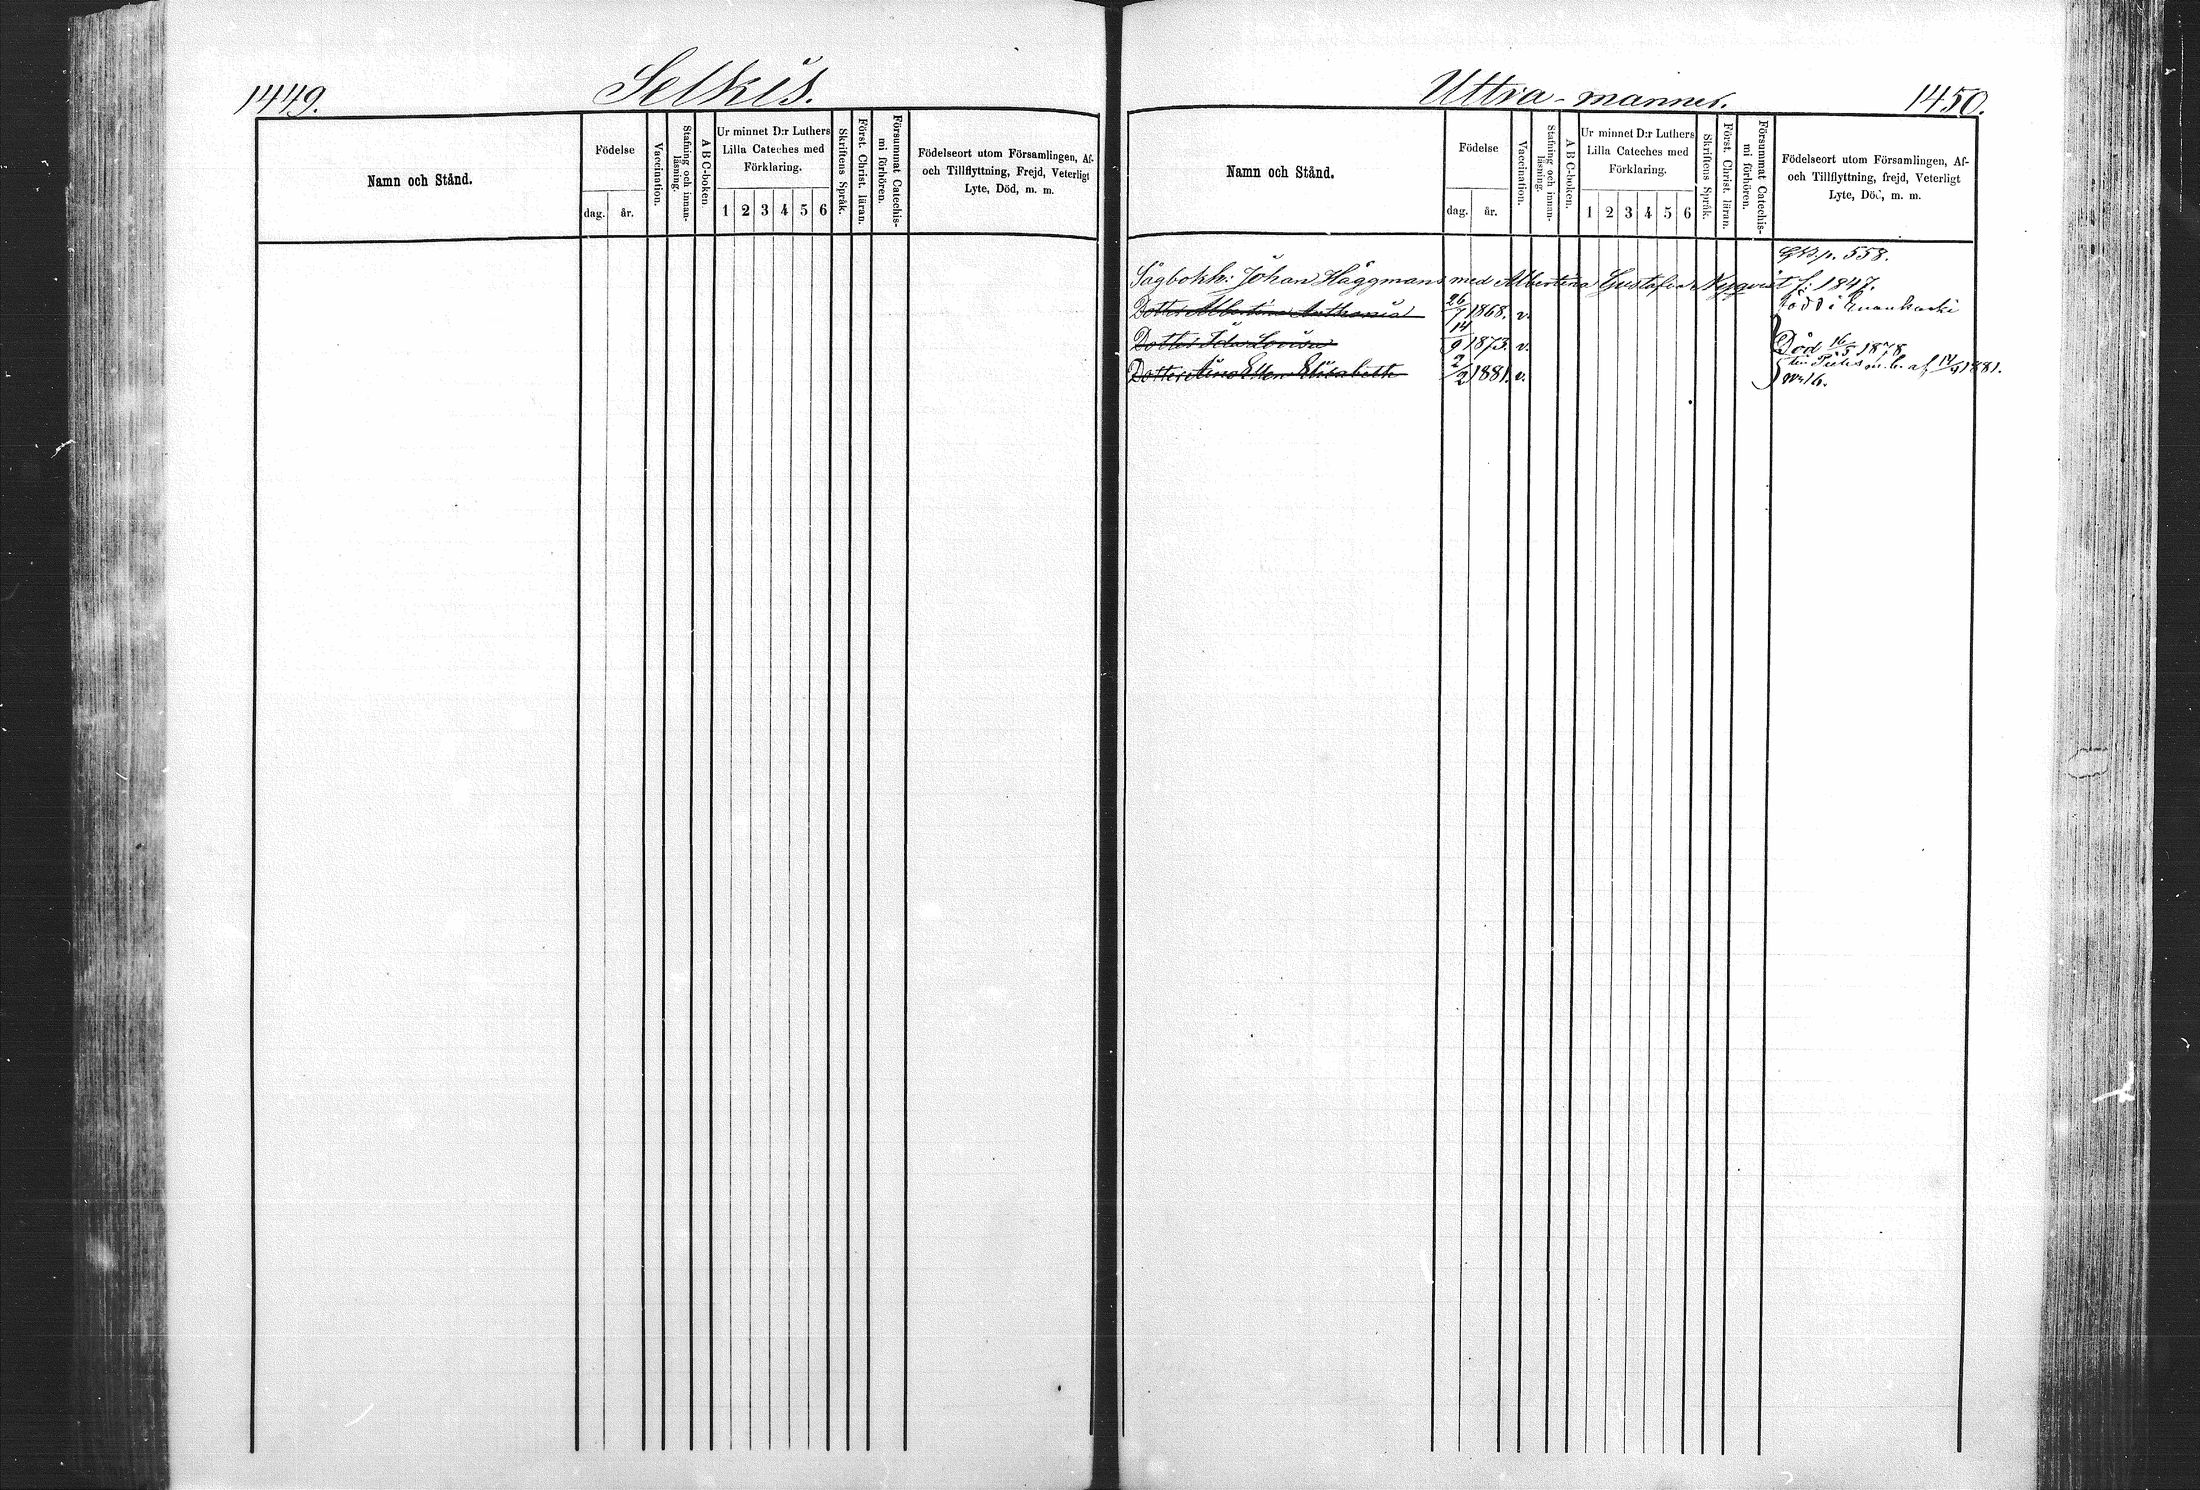 1449.
Selkis.
Namn och Stånd.
Födelse
dag. år.
Vaccination.
Stafning och innanläsning.
A B C-boken.
Ur minnet D:r Luthers
Lilla Cateches med
Förklaring.
1 2 3 4 5 6
Skriftens Språk.
Först. Christ. läran.
Försummat Catechismi förhören.
Födelseort utom Församlingen, Af-
och Tillflyttning, Frejd, Veterligt
Lyte, Död, m. m.
Uttra-manner.
1450.
Namn och Stånd.
Födelse
dag. år.
Vaccination.
Stafning och innanläsning.
A B C-boken.
Ur minnet D:r Luthers
Lilla Cateches med
Förklaring.
1 2 3 4 5 6
Skriftens Språk.
Först. Christ. läran.
Försummat Catechismi förhören.
Födelseort utom Församlingen, Af-
och Tillflyttning, frejd, Veterligt
Lyte, Död, m. m.
p. 558.
Sågbokh: Johan Häggmans med Albertina Gustafva Nyqvist f: 1847.
Dotter Albertina 26/7 1868. v. född i
Dotter Ida Lovisa 14/9 1873. v. Död 16/5 1878
Dotter Aino Ellen Elisabeth 2/2 1881. v. till m. b. af 14/9 1881.
No 16.